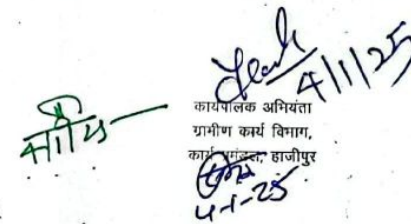 4/1/25
कार्यपालक अभियंता
ग्रामीण कार्य विभाग,
कार्य प्रमंडल, हाजीपुर
4-1-25